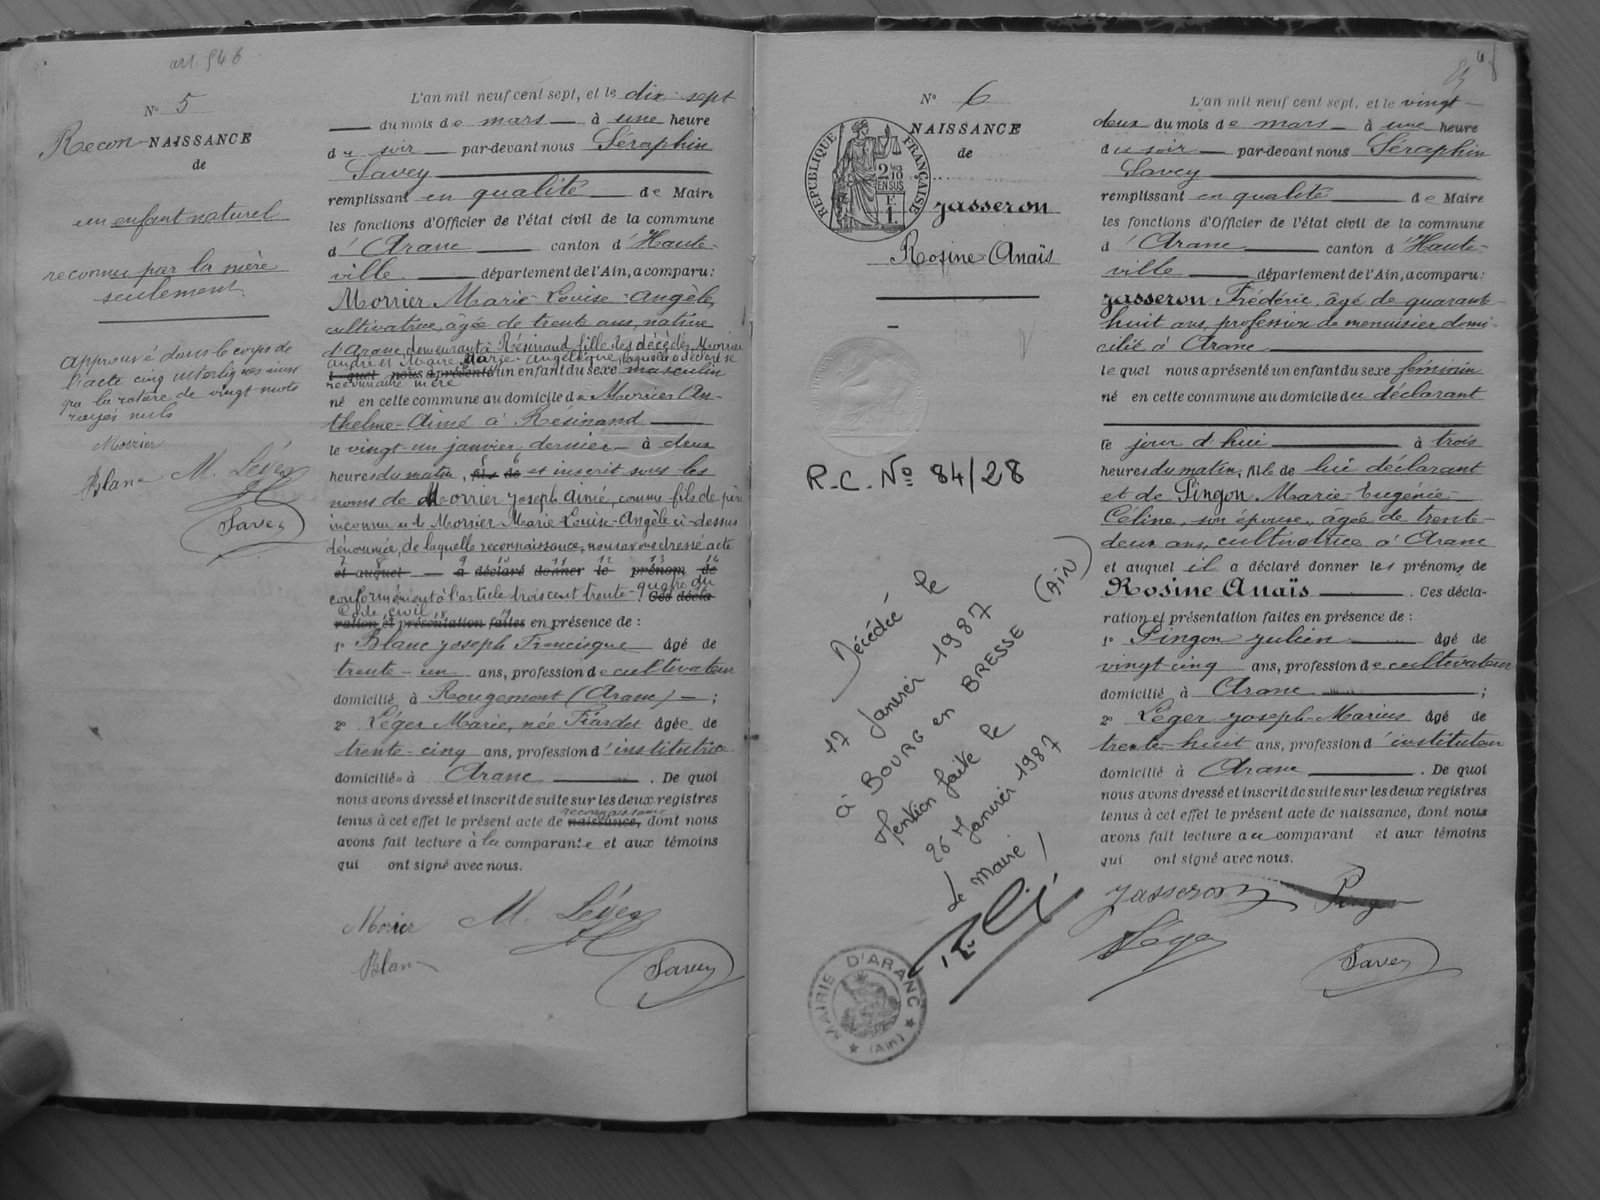 art. 546
N° 5
Recon-NAISSANCE
de
un enfant naturel
reconnu par la mère
seulement
Approuvé dans le corps de
l'acte cinq interlignes ainsi
que la rature de vingt-mots
rayés nuls
Morrier
Blanc M. Léger
Savey
L'an mil neuf cent sept, et le dix-sept
du mois de mars à une heure
du soir par-devant nous Séraphin
Savey
remplissant en qualité de Maire
les fonctions d'Officier de l'état civil de la commune
d'Aranc canton d'Haute-
ville département de l'Ain, a comparu:
Morrier Marie-Louise-Angèle,
cultivatrice, âgée de trente ans, native
d'Aranc, demeurant à Résinand, fille des décédés Morrier
André et Marie-Angélique, laquelle a déclaré se
reconnaître mère
lequel nous a présenté un enfant du sexe masculin
né en cette commune au domicile de Morrier An-
thelme-Aimé à Résinand
le vingt-un janvier dernier à deux
heures du matin, fils de et inscrit sous les
noms de Morrier Joseph Aimé, comme fils de père
inconnu et de Morrier Marie-Louise-Angèle ci-dessus
dénommée, de laquelle reconnaissance, nous avons dressé acte
et auquel a déclaré donner le prénom de
conformément à l'article trois cent trente-quatre du Ces décla-
Code civil
ration et présentation faites en présence de :
1° Blanc Joseph Francisque âgé de
trente-un ans, profession de cultivateur
domicilié à Rougemont (Aranc) ;
2° Léger Marie, née Tiardet âgée de
trente-cinq ans, profession d'institutrice
domiciliée à Aranc . De quoi
nous avons dressé et inscrit de suite sur les deux registres
reconnaissance
tenus à cet effet le présent acte de naissance, dont nous
avons fait lecture à la comparante et aux témoins
qui ont signé avec nous.
Morrier M. Léger
Blanc
Savey
N° 6
NAISSANCE
de
RÉPUBLIQUE FRANÇAISE
2/10
EN SUS
F.
1.
Jasseron
Rosine-Anaïs
R.C. N° 84/28
Décédée le
17 Janvier 1987
à BOURG en BRESSE (AIN)
Mention faite le
26 Janvier 1987
Le Maire
MAIRIE D'ARANC
(Ain)
L'an mil neuf cent sept, et le vingt-
deux du mois de mars à une heure
du soir par-devant nous Séraphin
Savey
remplissant en qualité de Maire
les fonctions d'Officier de l'état civil de la commune
d'Aranc canton d'Haute-
ville département de l'Ain, a comparu:
Jasseron Frédéric, âgé de quarante-
huit ans, profession de menuisier domi-
cilié à Aranc
lequel nous a présenté un enfant du sexe féminin
né en cette commune au domicile du déclarant
le jour d'hui à trois
heures du matin, fils de lui déclarant
et de Pingon Marie-Eugénie-
Céline, son épouse, âgée de trente-
deux ans, cultivatrice à Aranc
et auquel il a déclaré donner les prénoms de
Rosine Anaïs . Ces décla-
ration et présentation faites en présence de :
1° Pingon Julien âgé de
vingt-cinq ans, profession de cultivateur
domicilié à Aranc ;
2° Léger Joseph-Marius âgé de
trente-huit ans, profession d'instituteur
domicilié à Aranc . De quoi
nous avons dressé et inscrit de suite sur les deux registres
tenus à cet effet le présent acte de naissance, dont nous
avons fait lecture au comparant et aux témoins
qui ont signé avec nous.
Jasseron Pingon
Léger
Savey